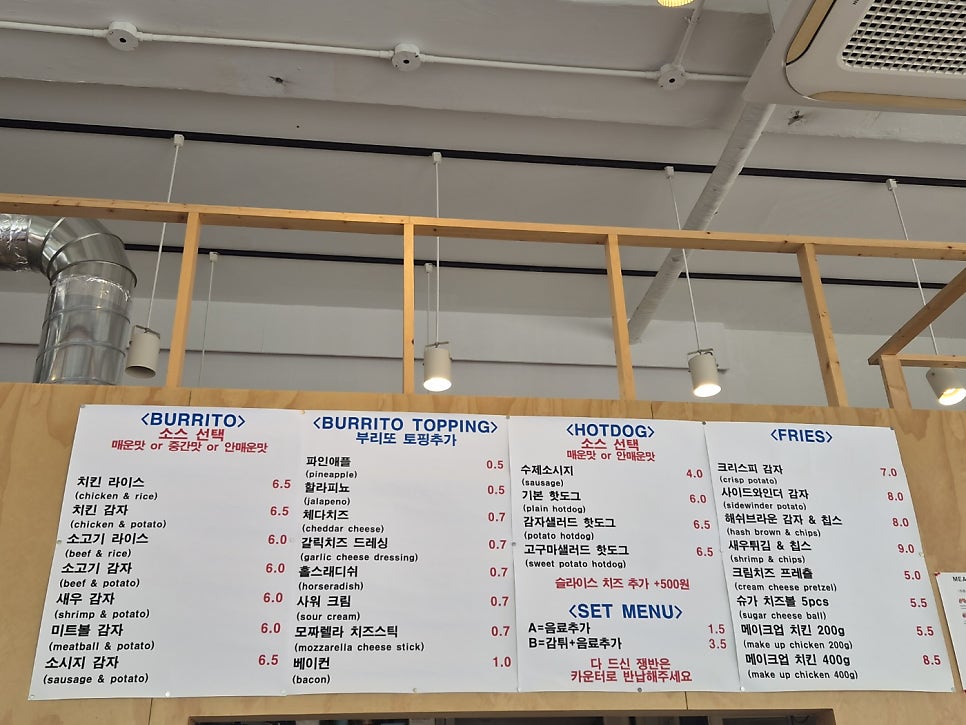 <BURRITO>
소스 선택
매운맛 or 중간맛 or 안매운맛
치킨 라이스 6.5
(chicken & rice)
치킨 감자 6.5
(chicken & potato)
소고기 라이스 6.0
(beef & rice)
소고기 감자 6.0
(beef & potato)
새우 감자 6.0
(shrimp & potato)
미트볼 감자 6.0
(meatball & potato)
소시지 감자 6.5
(sausage & potato)
<BURRITO TOPPING>
부리또 토핑추가
파인애플 0.5
(pineapple)
할라피뇨 0.5
(jalapeno)
체다치즈 0.7
(cheddar cheese)
갈릭치즈 드레싱 0.7
(garlic cheese dressing)
홀스래디쉬 0.7
(horseradish)
사워 크림 0.7
(sour cream)
모짜렐라 치즈스틱 0.7
(mozzarella cheese stick)
베이컨 1.0
(bacon)
<HOTDOG>
소스 선택
매운맛 or 안매운맛
수제소시지 4.0
(sausage)
기본 핫도그 6.0
(plain hotdog)
감자샐러드 핫도그 6.5
(potato hotdog)
고구마샐러드 핫도그 6.5
(sweet potato hotdog)
슬라이스 치즈 추가 +500원
<SET MENU>
A=음료추가 1.5
B=감튀+음료추가 3.5
다 드신 쟁반은
카운터로 반납해주세요
<FRIES>
크리스피 감자 7.0
(crisp potato)
사이드와인더 감자 8.0
(sidewinder potato)
해쉬브라운 감자 & 칩스 8.0
(hash brown & chips)
새우튀김 & 칩스 9.0
(shrimp & chips)
크림치즈 프레츨 5.0
(cream cheese pretzel)
슈가 치즈볼 5pcs 5.5
(sugar cheese ball)
메이크업 치킨 200g 5.5
(make up chicken 200g)
메이크업 치킨 400g 8.5
(make up chicken 400g)